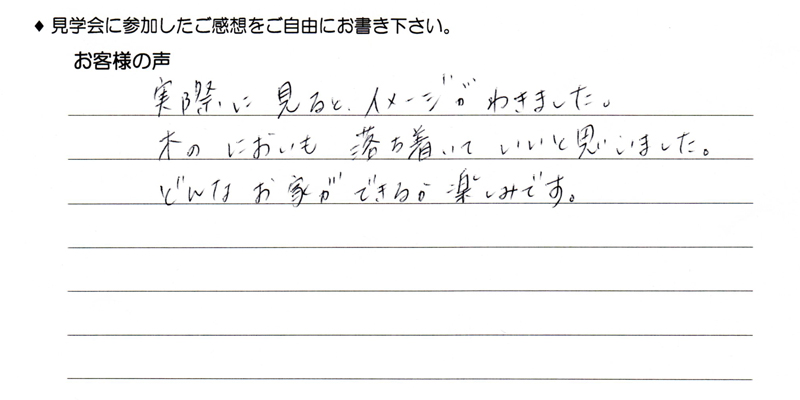 ◆ 見学会に参加したご感想をご自由にお書き下さい。
お客様の声
実際に見ると、イメージがわきました。
木のにおいも落ち着いていいと思いました。
どんなお家ができるか楽しみです。